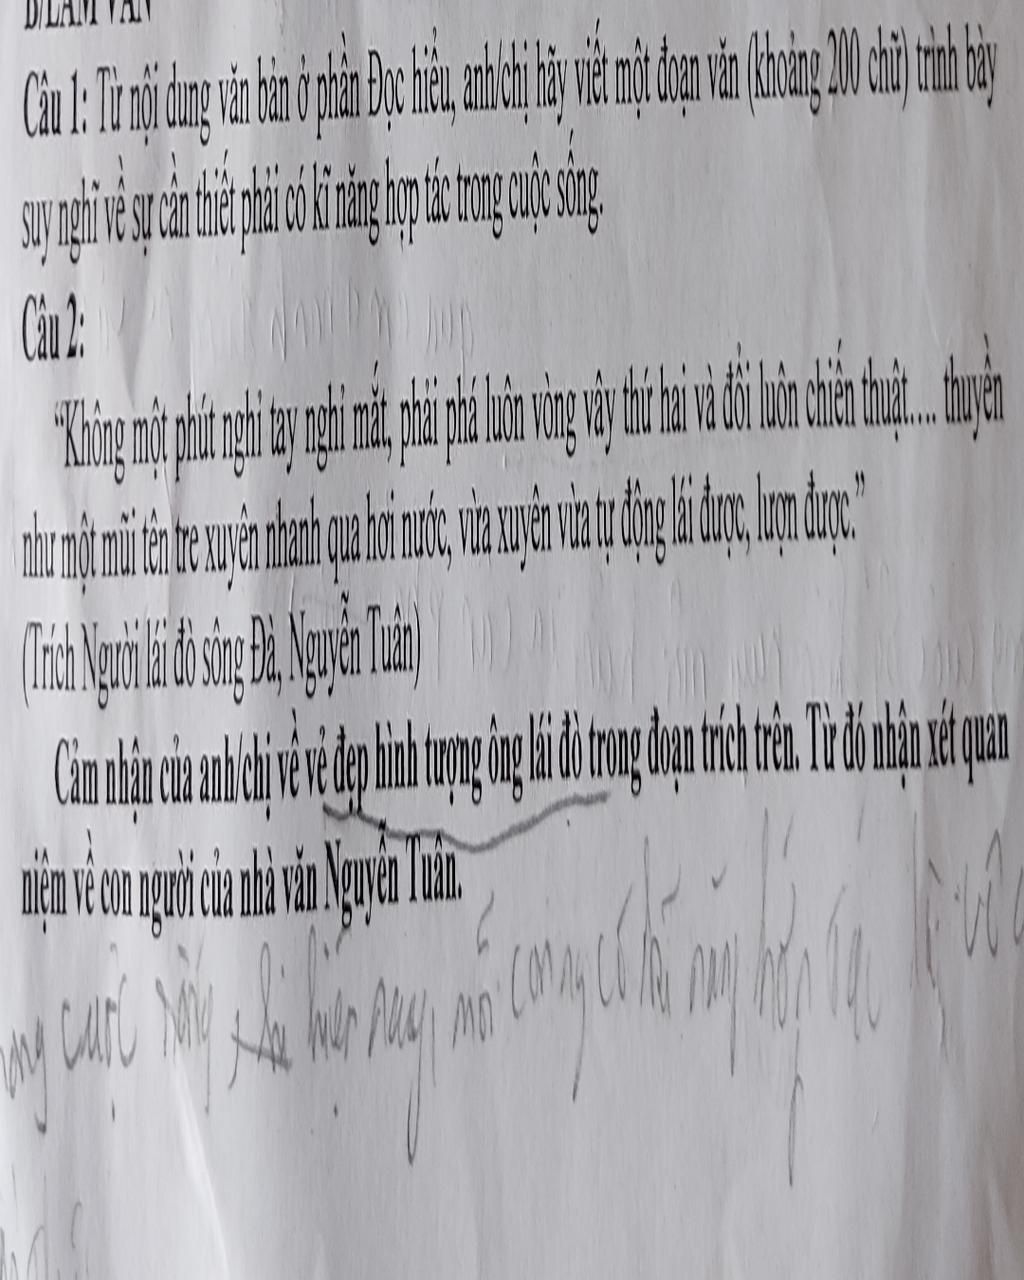 B/LÀM VĂN
Câu 1: Từ nội dung văn bản ở phần Đọc hiểu, anh/chị hãy viết một đoạn văn (khoảng 200 chữ) trình bày
suy nghĩ về sự cần thiết phải có kĩ năng hợp tác trong cuộc sống.
Câu 2:
“Không một phút nghỉ tay nghỉ mắt, phải phá luôn vòng vây thứ hai và đổi luôn chiến thuật.... thuyền
như một mũi tên tre xuyên nhanh qua hơi nước, vừa xuyên vừa tự động lái được, lượn được.”
(Trích Người lái đò sông Đà, Nguyễn Tuân)
Cảm nhận của anh/chị về vẻ đẹp hình tượng ông lái đò trong đoạn trích trên. Từ đó nhận xét quan
niệm về con người của nhà văn Nguyễn Tuân.
cuộc sống hiện nay, mỗi con ng có kĩ năng hợp tác